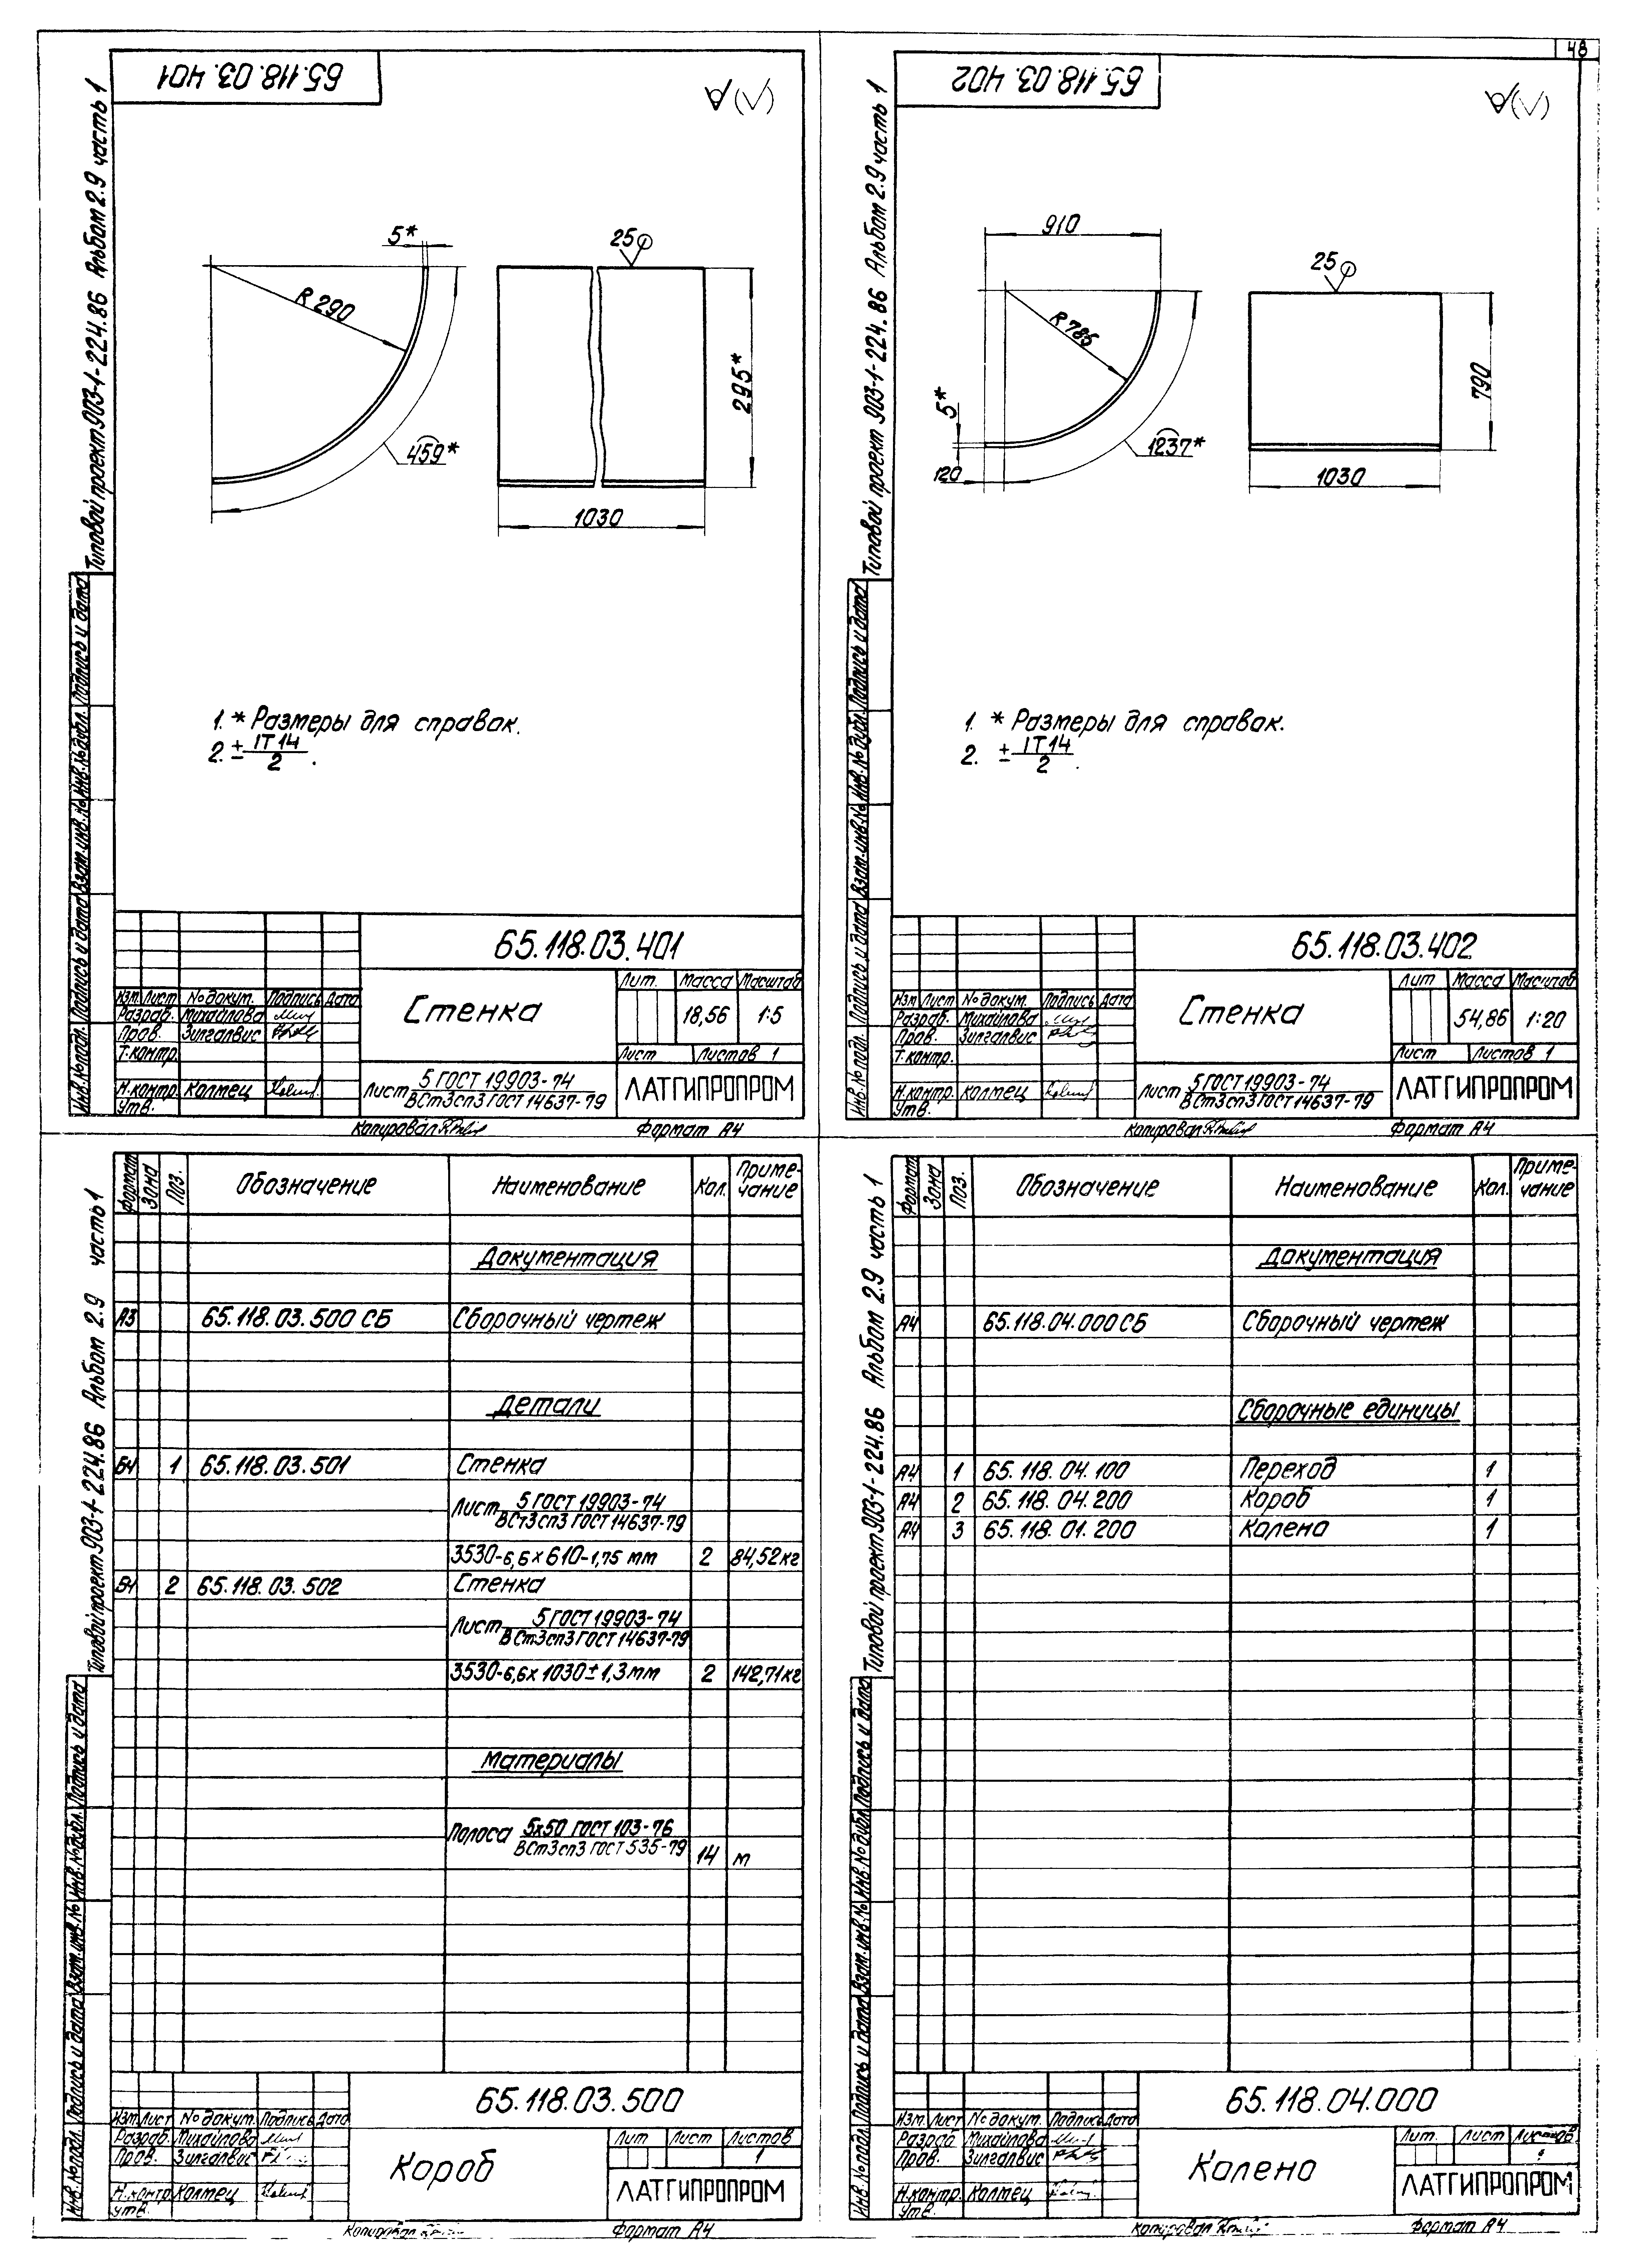 48
65.118.03.401
Типовой проект 903-1-224.86 Альбом 2.9 часть 1
5*
R 290
459*
25
295*
1030
1. * Размеры для справок.
2. ± IT14/2.
Инв.№подл. Подпись и дата Взам.инв.№ Инв.№дубл. Подпись и дата
65.118.03.401
Изм. Лист №докум. Подпись Дата
Разраб. Михайлова
Пров. Зилгалвис
Т.контр.
Н.контр. Калтец
Утв.
Стенка
Лит. Масса Масштаб
18,56 1:5
Лист Листов 1
Лист 5 ГОСТ 19903-74
ВСт3сп3 ГОСТ 14637-79
ЛАТГИПРОПРОМ
Копировал Формат А4
65.118.03.402
Типовой проект 903-1-224.86 Альбом 2.9 часть 1
910
R 785
5*
120
1237*
25
790
1030
1. * Размеры для справок.
2. ± IT14/2.
Инв.№подл. Подпись и дата Взам.инв.№ Инв.№дубл. Подпись и дата
65.118.03.402
Изм. Лист №докум. Подпись Дата
Разраб. Михайлова
Пров. Зилгалвис
Т.контр.
Н.контр. Калтец
Утв.
Стенка
Лит Масса Масштаб
54,86 1:20
Лист Листов 1
Лист 5 ГОСТ 19903-74
ВСт3сп3 ГОСТ 14637-79
ЛАТГИПРОПРОМ
Копировал Формат А4
Типовой проект 903-1-224.86 Альбом 2.9 часть 1
Формат Зона Поз. Обозначение Наименование Кол. Приме-
чание
Документация
А3 65.118.03.500 СБ Сборочный чертеж
Детали
БЧ 1 65.118.03.501 Стенка
Лист 5 ГОСТ 19903-74
ВСт3сп3 ГОСТ 14637-79
3530-6,6х610-1,75 мм 2 84,52кг
БЧ 2 65.118.03.502 Стенка
Лист 5 ГОСТ 19903-74
ВСт3сп3 ГОСТ 14637-79
3530-6,6х1030±1,3мм 2 142,71кг
Материалы
Полоса 5х50 ГОСТ 103-76
ВСт3сп3 ГОСТ 535-79 14 м
Инв.№подл. Подпись и дата Взам.инв.№ Инв.№дубл. Подпись и дата
65.118.03.500
Изм. Лист №докум. Подпись Дата
Разраб. Михайлова
Пров. Зилгалвис
Н.контр. Калтец
Утв.
Короб
Лит Лист Листов
1
ЛАТГИПРОПРОМ
Копировал Формат А4
Типовой проект 903-1-224.86 Альбом 2.9 часть 1
Формат Зона Поз. Обозначение Наименование Кол. Приме-
чание
Документация
А4 65.118.04.000 СБ Сборочный чертеж
Сборочные единицы
А4 1 65.118.04.100 Переход 1
А4 2 65.118.04.200 Короб 1
А4 3 65.118.01.200 Колено 1
Инв.№подл. Подпись и дата Взам.инв.№ Инв.№дубл. Подпись и дата
65.118.04.000
Изм. Лист №докум. Подпись Дата
Разраб Михайлова
Пров. Зилгалвис
Н.контр. Калтец
Утв.
Колено
Лит. Лист Листов
ЛАТГИПРОПРОМ
Копировал Формат А4